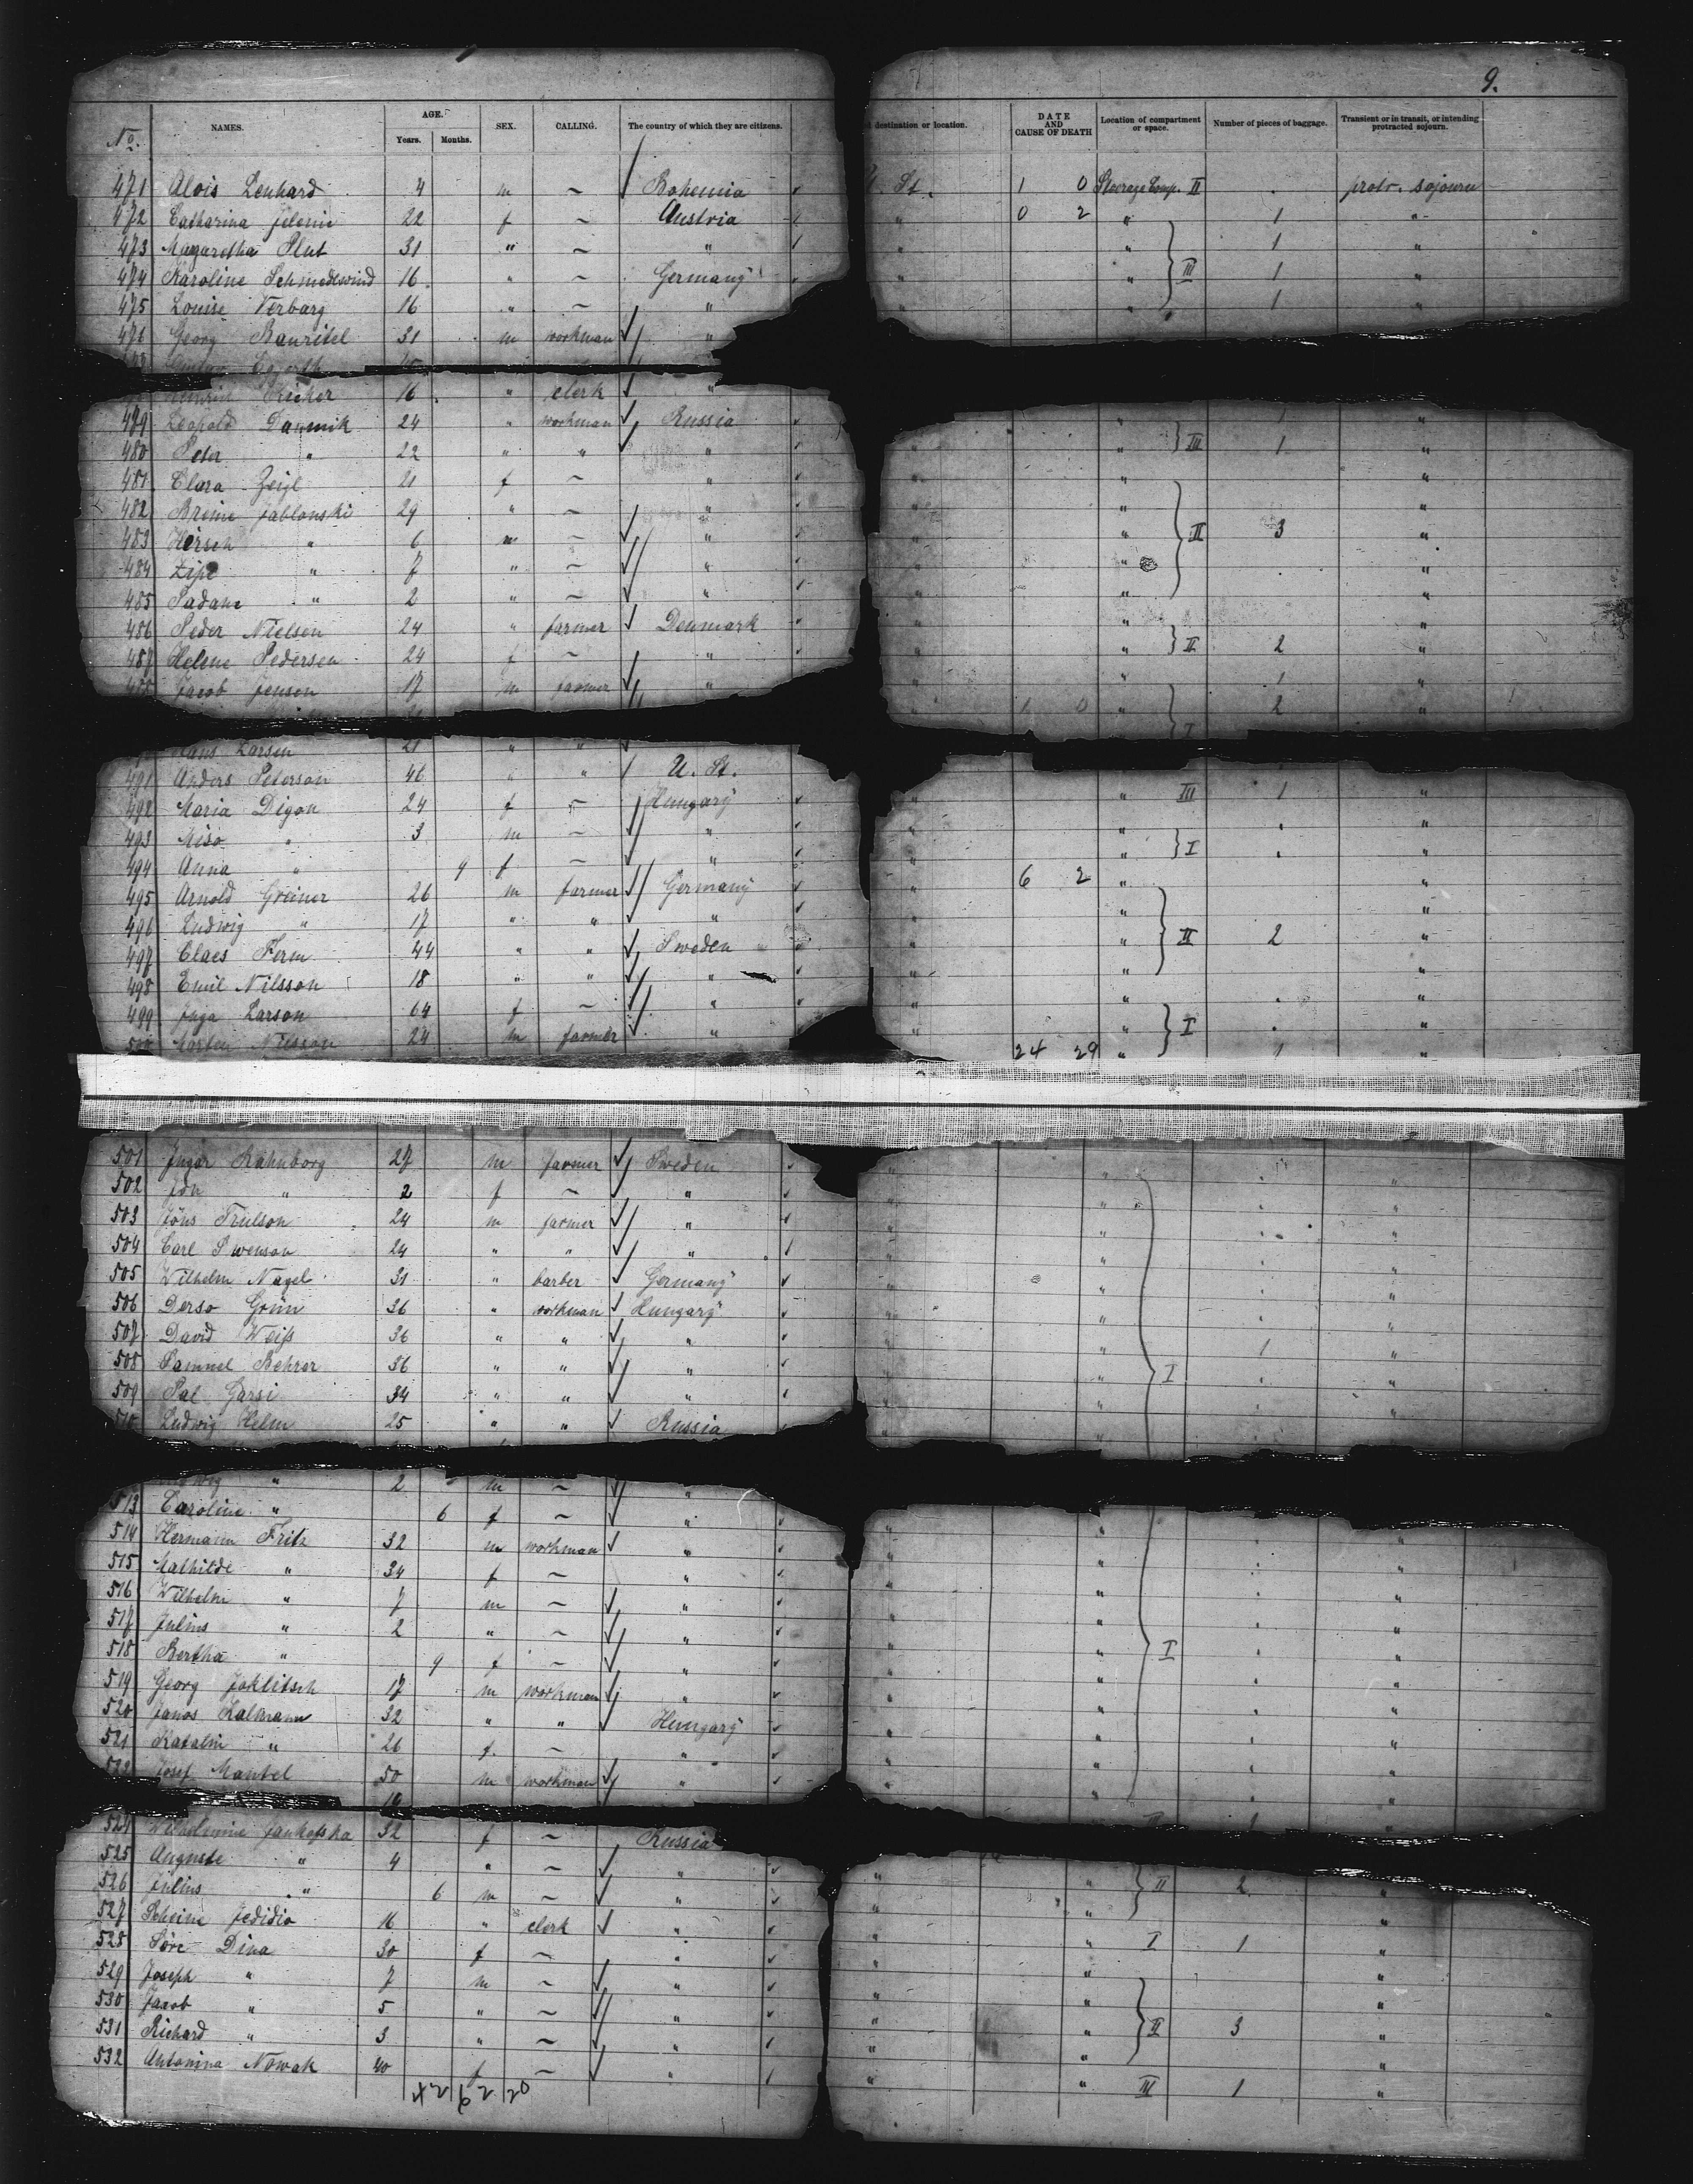 9.
No. NAMES. AGE. Years. Months. SEX. CALLING. The country of which they are citizens. destination or location. DATE AND CAUSE OF DEATH Location of compartment or space. Number of pieces of baggage. Transient or in transit, or intending protracted sojourn.
471 Alois Lenhard 4 m – Bohemia St. 1 0 Steerage Comp. II protr. sojourn
472 Catharina 22 f – Austria " 0 2 " 1 "
473 Magaretha Plut 31 " – " " " 1 "
474 Karoline Schmedeswind 16 " – Germany " " III 1 "
475 Louise Verbarg 16 " – " " " 1 "
476 Georg 31 m workman "
16 " clerk "
479 Leopold 24 " workman Russia " " 1 "
480 Peter " 22 " " " " " III 1 "
481 Clara 21 f – " " " "
482 Breine Jablonski 29 " – " " " "
483 Hirsch " 6 m – " " " II 3 "
484 Zipe " 7 " – " " " "
485 " 2 " – " " " "
486 Peder Nielsen 24 " farmer Denmark " " "
487 Helene Pedersen 24 f – " " " II 2 "
488 Jacob Jensen 17 m farmer " " " 1 "
1 0 " I 2 "
Hans Larsen 21 " "
491 Anders Peterson 46 " " U. St.
492 Maria Digon 24 f – Hungary " " III 1 "
493 Miso " 3 m – " " " "
494 Anna " 9 f – " " " I "
495 Arnold Greiner 26 m farmer Germany " 6 2 " "
496 Ludwig " 17 " " " " " "
497 Claes Ferm 44 " " Sweden " " II 2 "
498 Emil Nilsson 18 " " " " " "
499 Inga Larson 64 f – " " " "
500 Morten Nilsson 24 m farmer " " " I "
24 29 " 1 "
501 Ingar Rahnborg 27 m farmer Sweden " " "
502 " 2 f – " " " "
503 Jöns Trulson 24 m farmer " " " "
504 Carl Swenson 24 " " " " " "
505 Wilhelm Nagel 31 " barber Germany " " "
506 Derso Grün 36 " workman Hungary " " "
507 David Weiß 36 " " " " " 1 "
508 Samuel Behrer 36 " " " " " I "
509 Pal Garsi 34 " " " " " "
510 Ludwig Helm 25 " " Russia " "
" 2 m – "
513 Caroline " 6 f – " " " "
514 Hermann Fritz 32 m workman " " " "
515 Mathilde " 34 f – " " " "
516 Wilhelm " 7 m – " " " "
517 Julius " 2 " – " " " "
518 Bertha " 9 f – " " " I "
519 Georg Jaklitsch 17 m workman " " " "
520 Janos Kalmann 32 " " Hungary " " "
521 Katalin " 26 f – " " " "
522 Josef Mantel 50 m workman " " " "
524 Wilhelmine 32 f – Russia
525 Auguste " 4 " – " " " II 2 "
526 Julius " 6 m – " " " "
527 Scheine Jedidio 16 " clerk " " " I 1 "
528 Sore Dina 30 f – " " " "
529 Joseph " 7 m – " " " "
530 Jacob " 5 " – " " " II 3 "
531 Richard " 3 " – " " " "
532 Antonina Nowak 40 f – " " " III 1 "
42 62 20